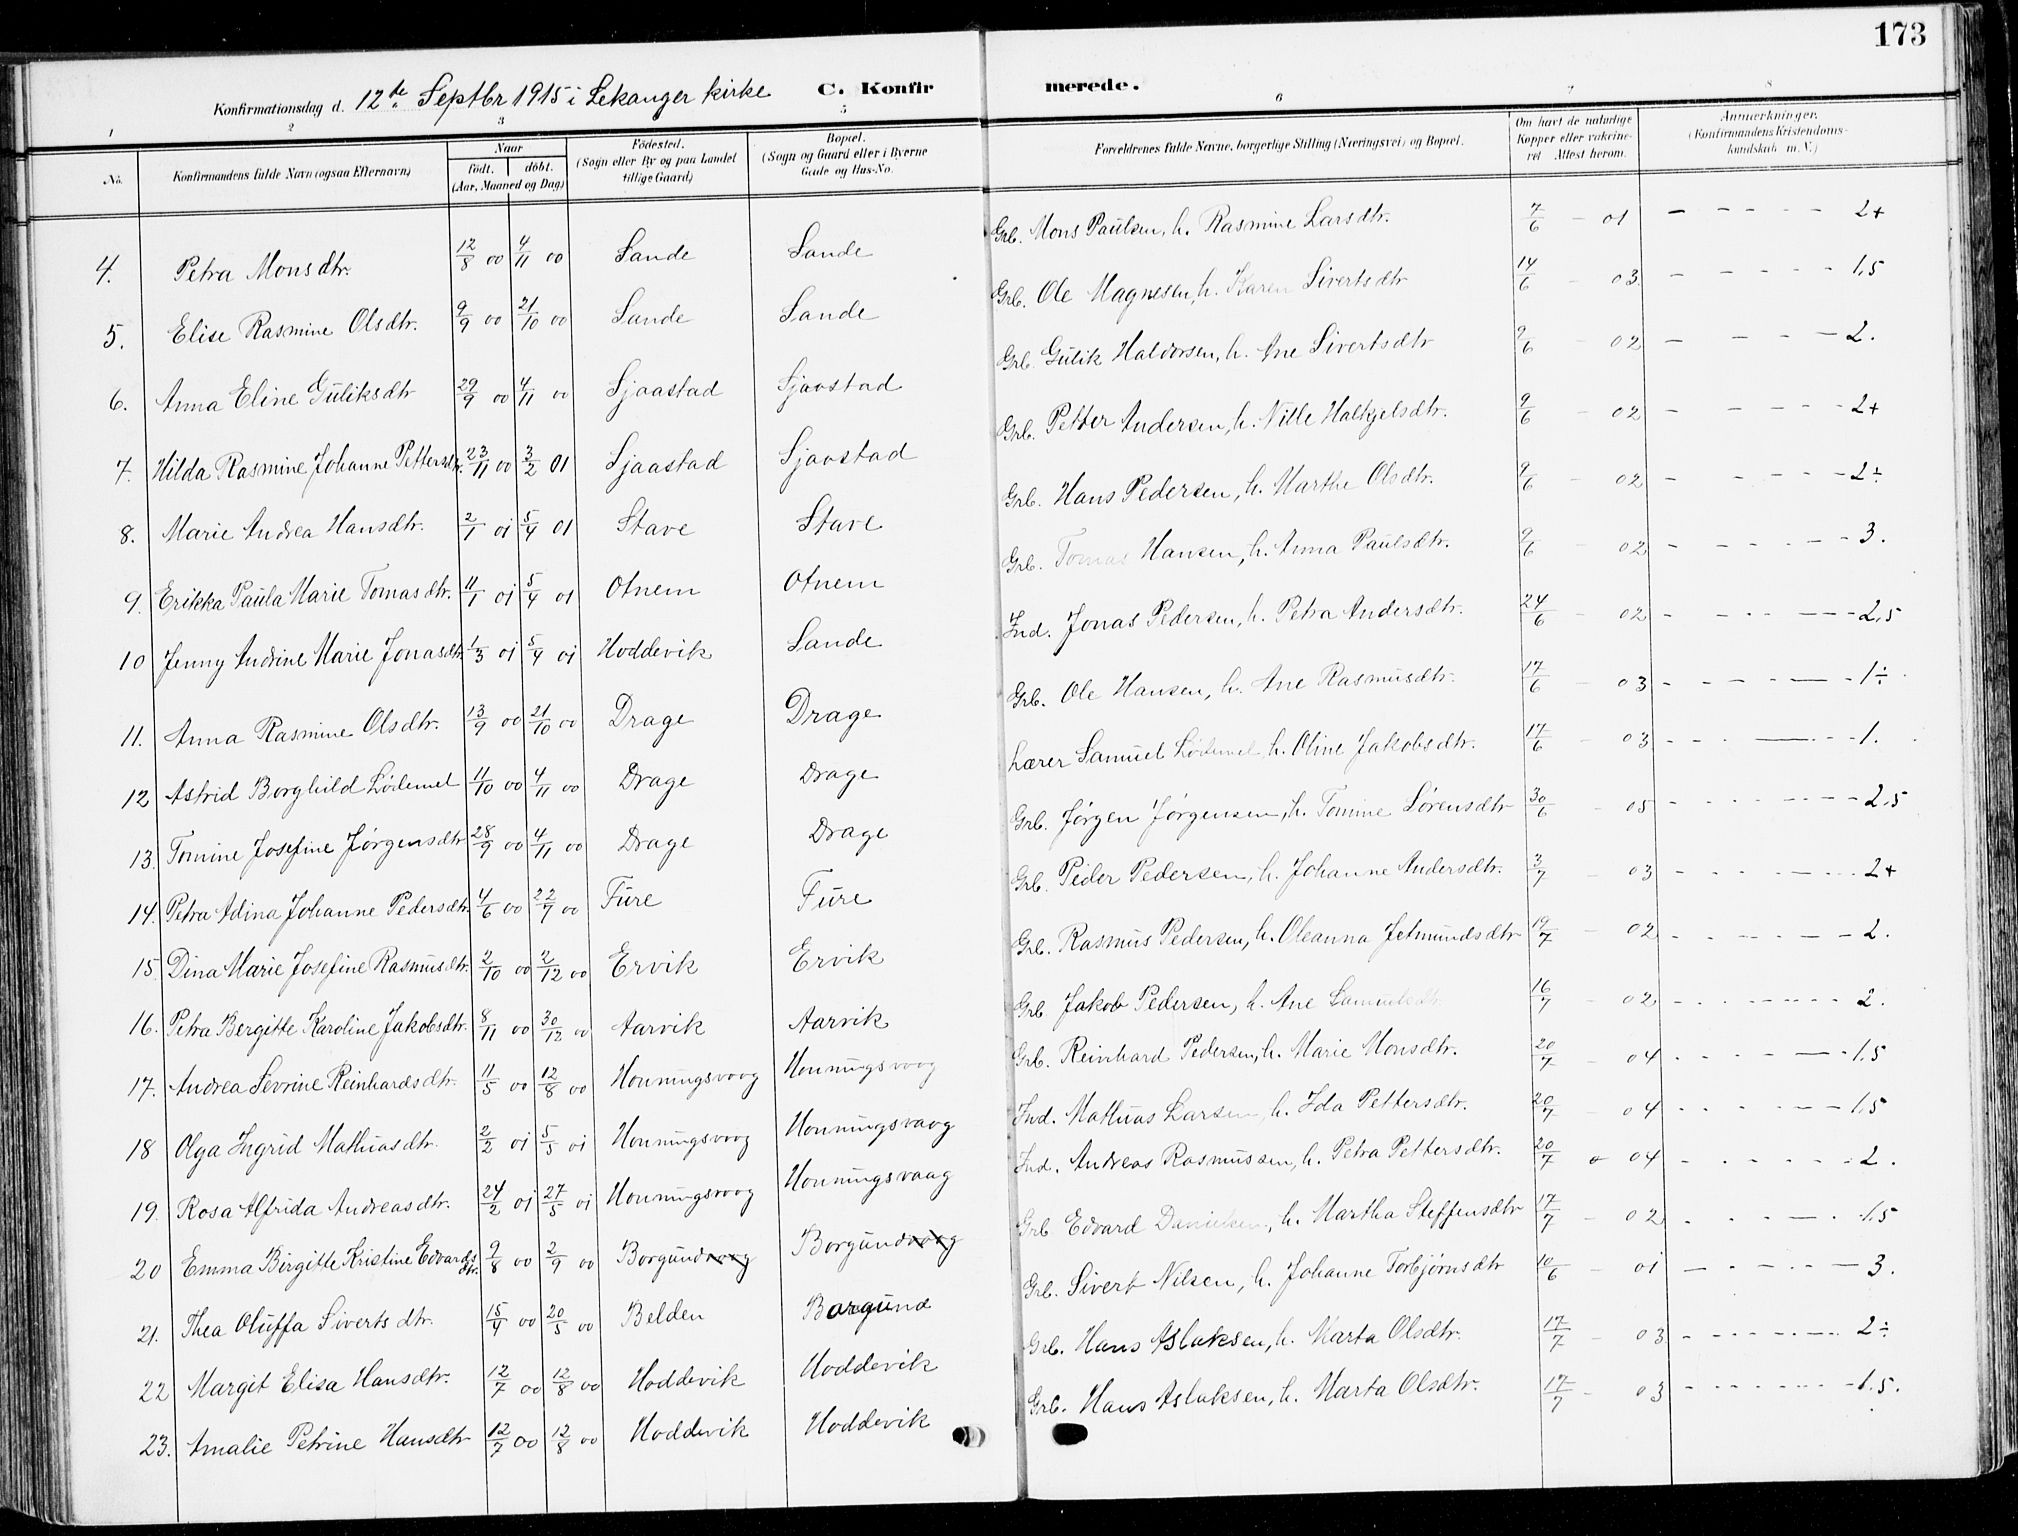 173
Konfirmationsdag d. 12te Septbr 1915 i Lekanger kirke C. Konfir merede.
1 2 3 5 6 7 8
No. Konfirmandens fulde Navn (ogsaa Efternavn) Naar født. døbt. (Aar, Maaned og Dag) Fødested. (Sogn eller By og paa Landet tillige Gaard) Bopæl. (Sogn og Gaard eller i Byerne Gade og Hus-No. Forældrenes fulde Navne, borgerlige Stilling (Næringsvei) og Bopæl. Om havt de naturlige Kopper eller vakcineret Attest herom. Anmærkninger. (Konfirmandens Kristendomskundskab m. V.)
4. Petra Monsdtr. 12/8 00 4/11 00 Sande Sande Grb. Mons Paulsen, h. Rasmine Larsdtr. 7/6 - 01 - - - - - 2+
5. Elise Rasmine Olsdtr. 9/9 00 21/10 00 Sande Sande Grb. Ole Magnesen, h. Karen Sivertsdtr 14/6 - 03 - - - - - 1,5
6. Anna Eline Guliksdtr 29/9 00 4/11 00 Sjaastad Sjaastad Grb. Gulik Haldorsen, h. Ane Sivertsdtr 9/6 - 02 - - - - 2.
7. Hilda Rasmine Johanne Pettersdtr. 23/11 00 3/2 01 Sjaastad Sjaastad Grb. Petter Andersen, h. Nille Halkjelsdtr. 9/6 - 02 - - - - - 2+
8. Marie Andrea Hansdtr. 2/1 01 5/4 01 Stave Stave Grb. Hans Pedersen, h. Marthe Olsdtr. 9/6 - 02 - - - - - 2÷
9. Erikka Paula Marie Tomasdtr. 11/1 01 5/4 01 Otnem Otnem Grb. Tomas Hansen, h. Anna Paulsdtr. 9/6 - 02 - - - - - 3.
10 Jenny Andrine Marie Jonasdtr 1/3 01 5/4 01 Hoddevik Sande Ind. Jonas Pedersen, h. Petra Andersdtr. 24/6 - 02 - - - - - 2,5
11. Anna Rasmine Olsdtr. 13/9 00 21/10 00 Drage Drage Grb. Ole Hansen, h. Ane Rasmusdtr. 17/6 - 03 - - - - - 1÷
12 Astrid Borghild Lødemel 11/10 00 4/11 00 Drage Drage Lærer Samuel Lødemel h. Oline Jakobsdtr. 17/6 - 03 - - - - - 1.
13. Tomine Josefine Jørgensdtr 28/9 00 4/11 00 Drage Drage Grb. Jørgen Jørgensen, h. Tomine Sørensdtr 30/6 - 05 - - - - - 2,5
14. Petra Adina Johanne Pedersdtr. 4/6 00 22/7 00 Fure Fure Grb. Peder Pedersen, h. Johanne Andersdtr. 3/7 - 03 - - - - - 2+
15. Dina Marie Josefine Rasmusdtr. 2/10 00 2/12 00 Ervik Ervik Grb. Rasmus Pedersen, h. Oleanna Jetmundsdtr 19/7 - 02 - - - - - 2.
16. Petra Bergitte Karoline Jakobsdtr. 8/11 00 30/12 00 Aarvik Aarvik Grb Jakob Pedersen, h. Ane Samuelsdtr. 16/7 - 02 - - - - - 2.
17. Andrea Sevrine Reinhardsdtr. 11/5 00 12/8 00 Honningsvaag Honningsvaag Grb. Reinhard Pedersen, h. Marie Monsdtr. 20/7 - 04 - - - - - 1,5
18 Olga Ingrid Mathiasdtr. 2/2 01 5/5 01 Honningsvaag Honningsvaag Ind. Mathias Larsen, h. Ida Pettersdtr. 20/7 - 04 - - - - - 1,5
19. Rosa Alfrida Andreasdtr. 24/2 01 27/5 01 Honningsvaag Honningsvaag Ind. Andreas Rasmussen, h. Petra Pettersdtr. 20/7 - 04 - - - - - 2.
20 Emma Birgitte Kristine Edvardsdtr. 9/8 00 2/9 00 Borgundvaag Borgundvaag Grb Edvard Danielsen, h. Martha Steffensdtr 17/7 - 02 - - - - - 1,5
21. Thea Oluffa Sivertsdtr. 15/4 00 20/5 00 Belden Borgund Grb. Sivert Nilsen, h. Johanne Torbjørnsdtr 10/6 - 01 - - - - - 3.
22 Margit Elisa Hansdtr. 12/7 00 12/8 00 Hoddevik Hoddevik Grb. Hans Aslaksen, h. Marta Olsdtr. 17/7 - 03 - - - - - 2÷
23. Amalie Petrine Hansdtr 12/7 00 12/8 00 Hoddevik Hoddevik Grb. Hans Aslaksen, h. Marta Olsdtr. 17/7 - 03 - - - - - 1.5.